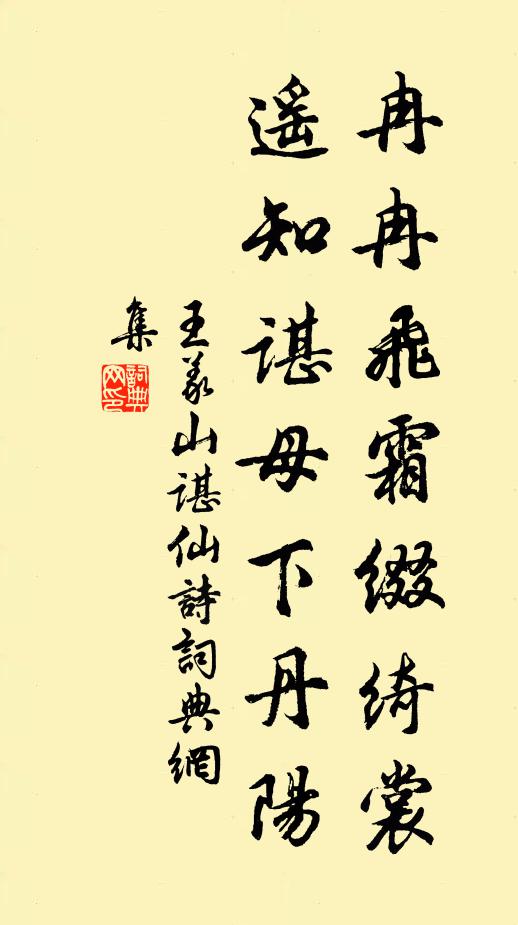 冉冉飛霜綴綺裳
遥知諶母下丹陽
王義山諶仙詩詞典網
集
詞典
网印